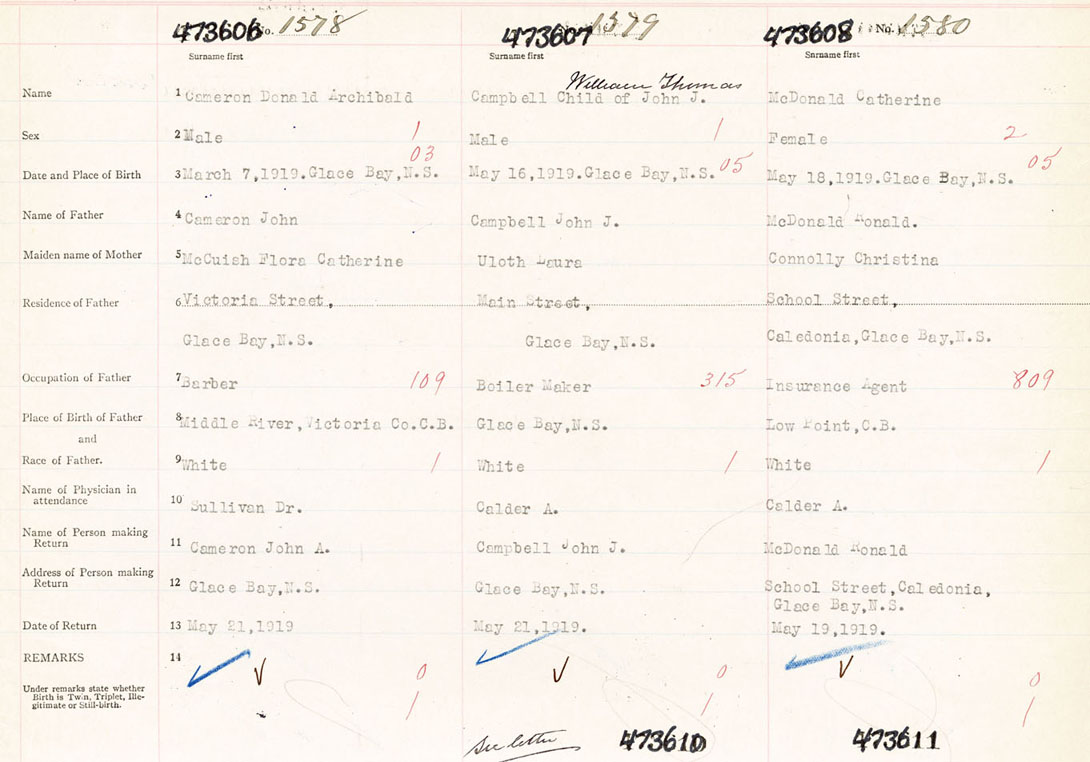 473606 No. 1578 473607 1579 473608 No. 1580
Surname first Surname first Surname first
William Thomas
Name 1 Cameron Donald Archibald Campbell Child of John J. McDonald Catherine
Sex 2 Male 1 Male 1 Female 2
03 05 05
Date and Place of Birth 3 March 7,1919.Glace Bay,N.S. May 16,1919.Glace Bay,N.S. May 18,1919.Glace Bay,N.S.
Name of Father 4 Cameron John Campbell John J. McDonald Ronald.
Maiden name of Mother 5 McCuish Flora Catherine Uloth Laura Connolly Christina
Residence of Father 6 Victoria Street, Main Street, School Street,
Glace Bay,N.S. Glace Bay,N.S. Caledonia,Glace Bay,N.S.
Occupation of Father 7 Barber 109 Boiler Maker 315 Insurance Agent 809
Place of Birth of Father 8 Middle River,Victoria Co.C.B. Glace Bay,N.S. Low Point,C.B.
and
Race of Father. 9 White 1 White 1 White 1
Name of Physician in
attendance 10 Sullivan Dr. Calder A. Calder A.
Name of Person making
Return 11 Cameron John A. Campbell John J. McDonald Ronald
Address of Person making
Return 12 Glace Bay,N.S. Glace Bay,N.S. School Street,Caledonia,
Glace Bay,N.S.
Date of Return 13 May 21,1919 May 21,1919. May 19,1919.
REMARKS 14
0 0 0
Under remarks state whether
Birth is Twin, Triplet, Ille-
gitimate or Still-birth.
1 1 1
See letter 473610 473611